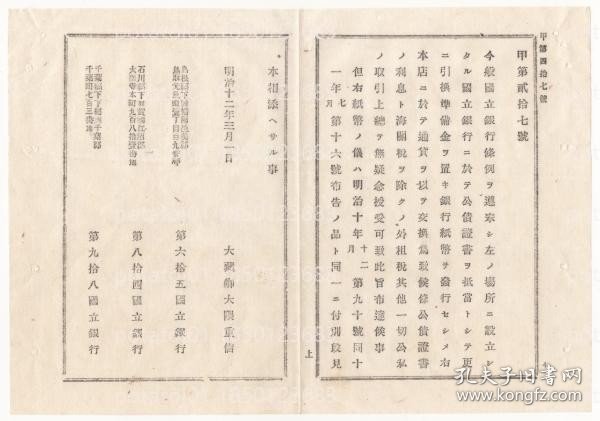 甲第四拾七號
甲第貳拾七號
今般國立銀行條例ヲ遵奉シ左ノ場所ニ設立シ
タル國立銀行ニ於テ公債證書ヲ抵當トシテ更
ニ引換準備金ヲ置キ銀行紙幣ヲ發行セシメ右
本店ニ於テ通貨ヲ以テ交換爲致候條公債證書
ノ利息ト海關税ヲ除クノ外租税其他一切公私
ノ取引上總テ無疑念授受可致此旨布達候事
但右紙幣ノ儀ハ明治十年十二月第九十號同十
一年七月第十六號布告ノ品ト同一ニ付別段見
本相添ヘサル事
明治十二年三月一日
大藏卿大隈重信
第六拾五國立銀行
石川縣下
大聖寺本町九百八拾
第八拾四國立銀行
千葉縣下下總國千葉郡
千葉町七百三番地
第九拾八國立銀行
上
孔夫子旧书网
www.kongfz.com